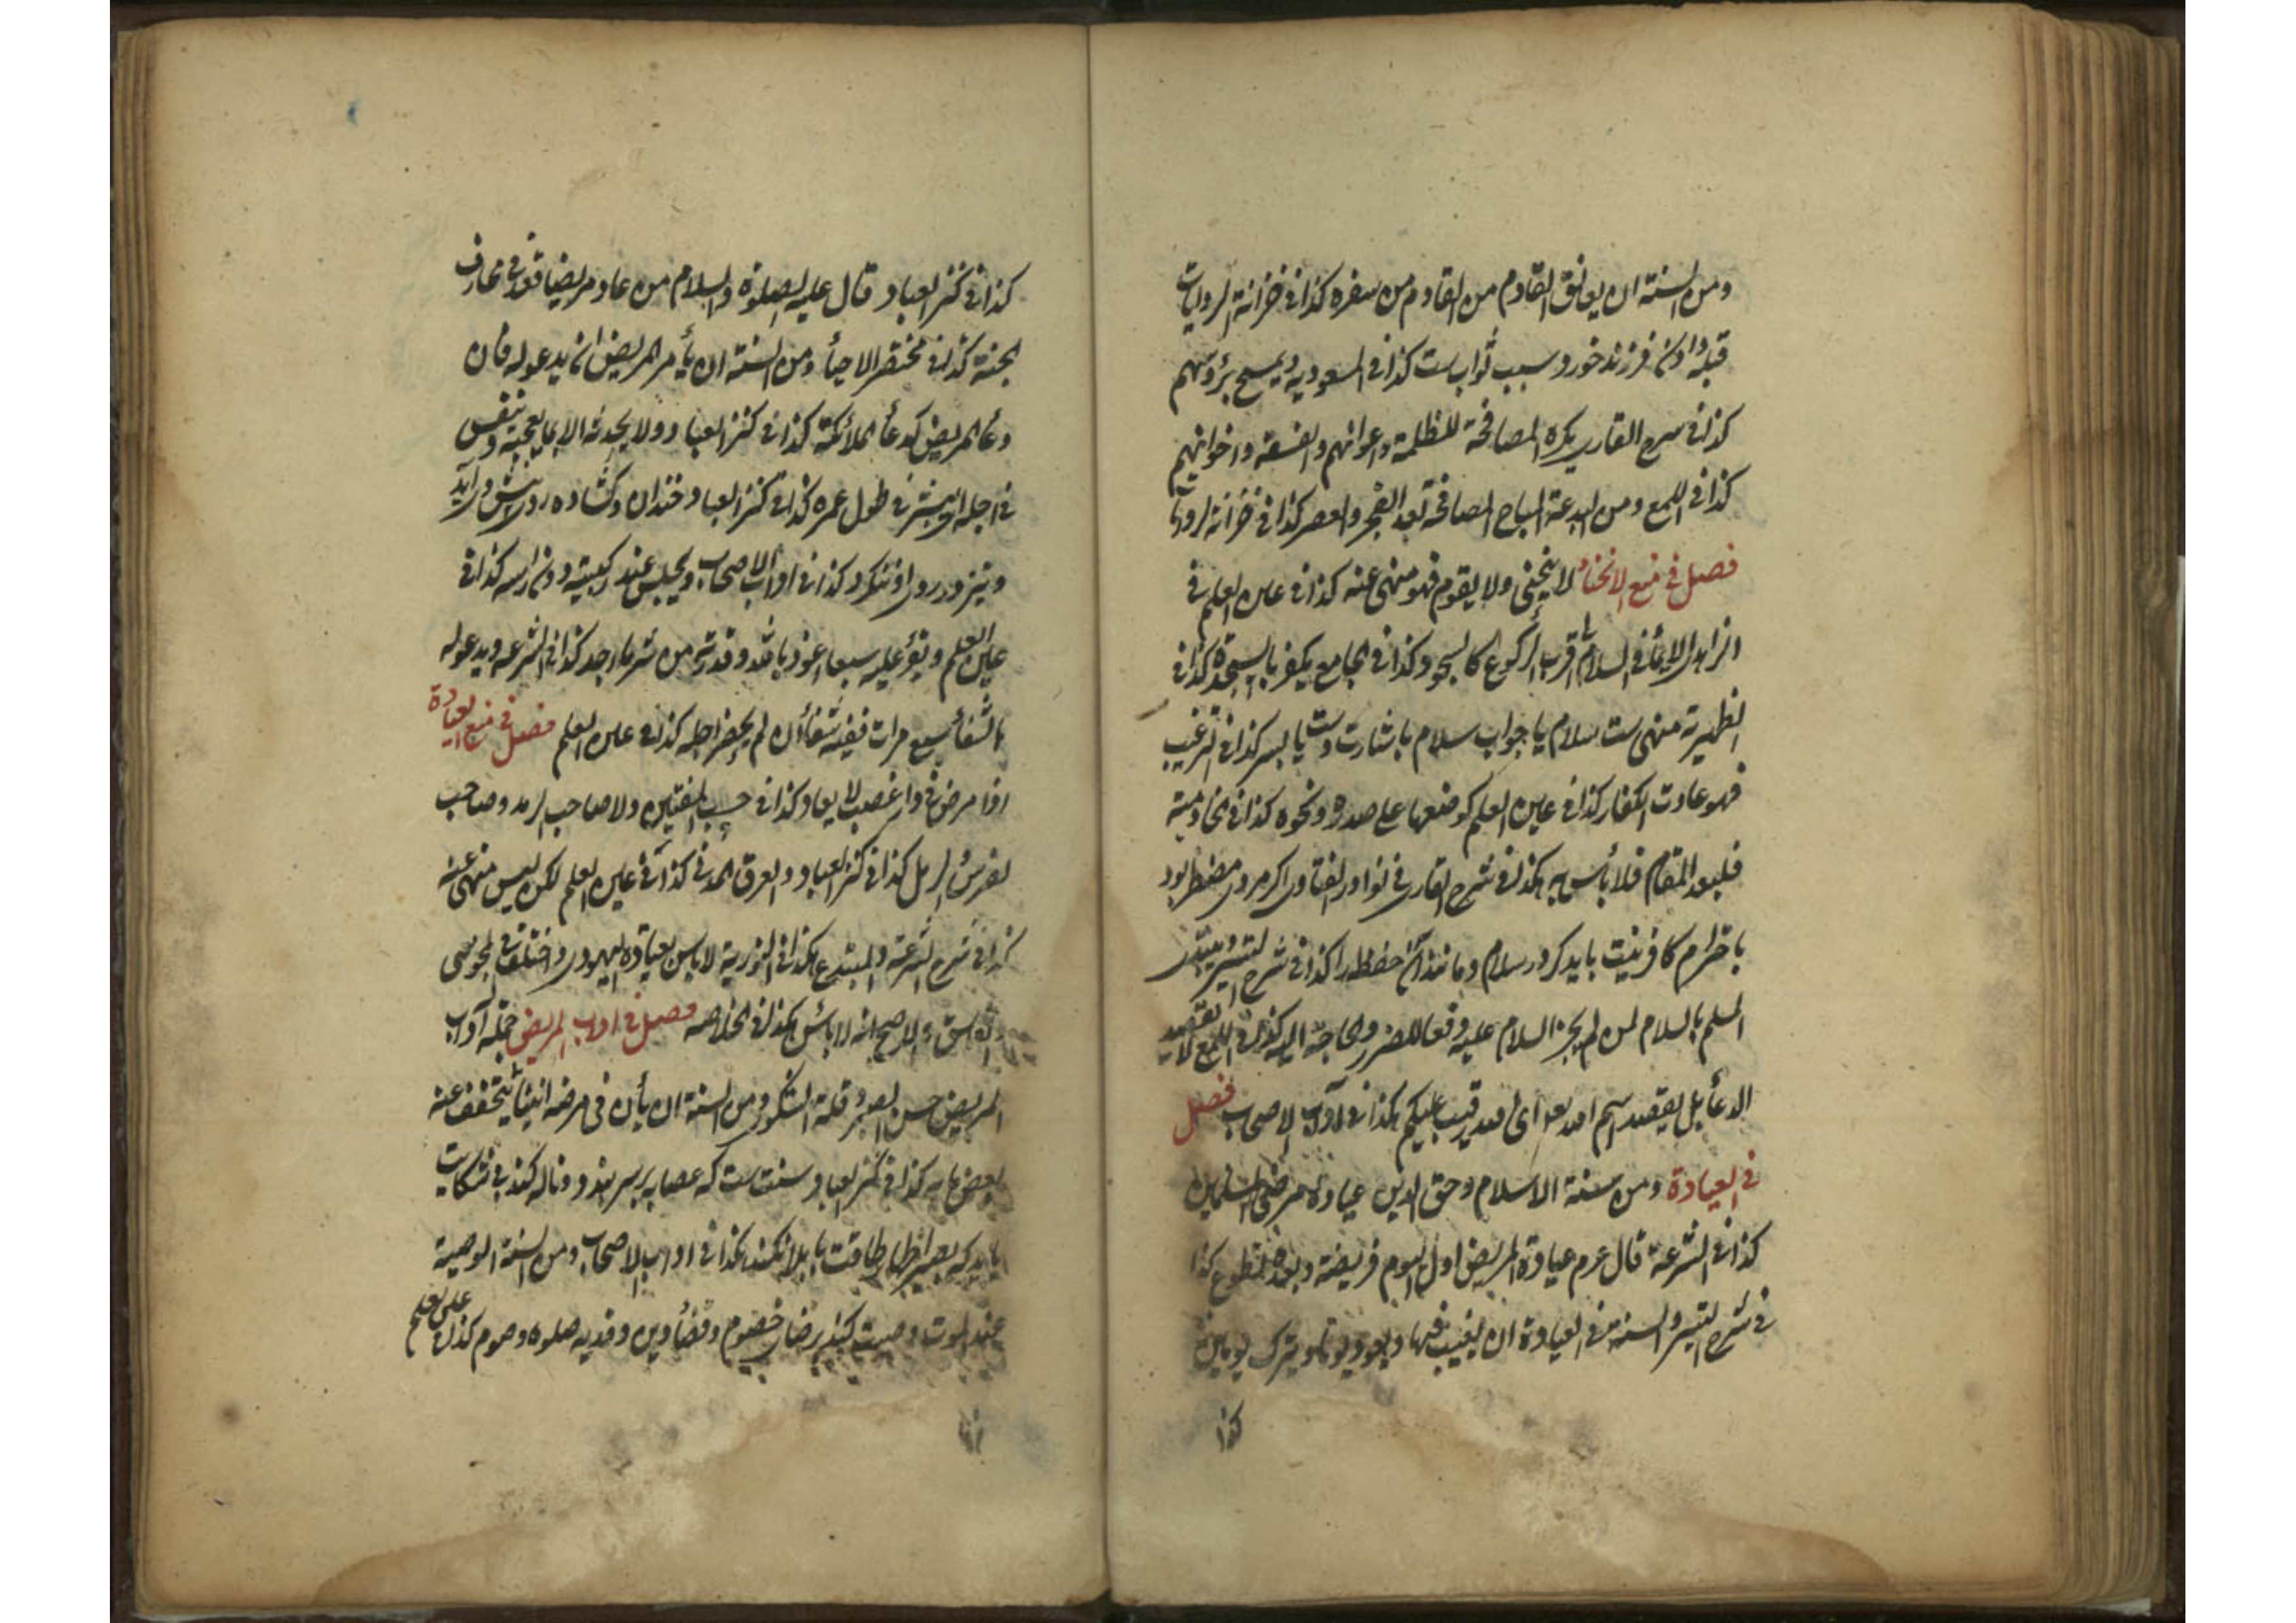 ومن السنة ان يعانق القادم من القادم من سفره كذا في خزانة الروايات
قبله دادن فرزند خورد سبب ثواب ست كذا في المسعودية ويمسح برؤسهم
كذا في شرح القاري يكره المصافحة للظلمة واعوانهم والفسقة واخوانهم
كذا في اللمع ومن البدعة المباح المصافحة بعد الفجر والعصر كذا في خزانة الروايا
فصل في منع الانحناء لا ينحني ولا يقوم فهو منهي عنه كذا في عين العلم في
الزاهدي الايماء في السلام الى قرب الركوع كالسجود كذا في الجامع يكفر بالسجدة كذا في
الظهيرية منهي ست سلام يا جواب سلام باشارت دست يا بسر كذا في الترغيب
فهو عادت الكفار كذا في عين العلم كوضعها على صدره ونحوه كذا في الخادمية
فلا بأس به هكذا في شرح القاري في نوادر الفتاوى اكر مردى مضطر بود
با خدام كافر نيت بايد كرد سلام ومانند آن حفظه را كذا في شرح
المسلم بالسلام لمن لم يجز السلام عليه دفعا للضرر والحاجة اليه كذا في اللمع لا يقصد
الدعاء بل يقصد اسم الله تعالى اى الله رقيب عليكم هكذا في آداب الاصحاب فصل
في العيادة ومن سنة الاسلام وحق الدين عيادة مرضى المسلمين
كذا في الشرعة قال عم عيادة المريض اول اليوم فريضة وبعده تطوع كذا
في شرح التيسير والسنة في العيادة ان يغيب فيها ويعود يوما ويترك يومين
كذا
كذا في كنز العباد قال عليه الصلوة والسلام من عاد مريضا قعد في مخارف
الجنة كذا في مختصر الاحياء ومن السنة ان يأمر المريض ان يدعو له فان
دعاء المريض كدعاء الملائكة كذا في كنز العباد ولا يحدثه الا بما يعجبه وينفس
في اجله اى يبشر في طول عمره كذا في كنز العباد خندان وكشاده روى پيش در آيد
وتيز در روى او ننكرد كذا في اداب الاصحاب ويجلس عند ركبتيه دون رأسه كذا في
عين العلم ويقرء عليه سبعا اعوذ بالله وقدرته من شر ما اجد كذا في الشرعة ويدعو له
بالشفاء سبع مرات ففيه شفاء ان لم يحضر اجله كذا في عين العلم فصل في منع العيادة
اذا مرض في دار غصب لا يعاد كذا في حسب المفتين ولا صاحب الرمد وصاحب
الضرس والرمل كذا في كنز العباد والعرق المدني كذا في عين العلم لكن ليس منهي عنه
كذا في شرح الشرعة والمبتدع هكذا في النورية لا بأس بعيادة اليهودي واختلف في المجوسي
والفاسق الاصح انه لا بأس هكذا في الخلاصة فصل في اداب المريض جمله آداب
المريض حسن الصبر وقلة الشكو ومن السنة ان يأن في مرضه انينا يتخفف عنه
بعض ما به كذا في كنز العباد سنت ست كه عصابه بر سر بندد وناله كند بى شكايت
بايد كه بصبر اظهار طاقت با بلا نكند هكذا في اداب الاصحاب ومن السنة الوصية
عند الموت وصيت كند برضاى خصوم وقضاء دين وفديه صلوة وصوم كذا في عين العلم